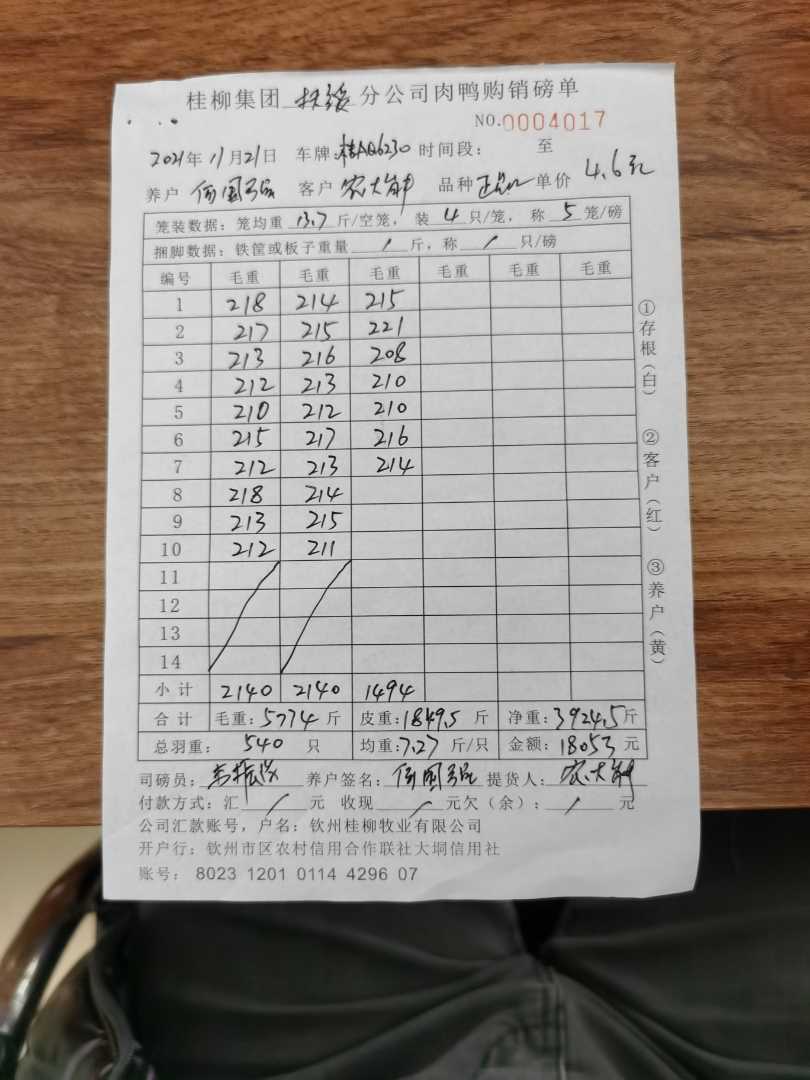 桂柳集团 扶绥 分公司肉鸭购销磅单
NO.0004017
2021年11月21日 车牌:桂AQ6230 时间段: 至
养户 客户 农大韩 品种 正品 单价 4.6元
笼装数据: 笼均重 13.7 斤/空笼, 装 4 只/笼, 称 5 笼/磅
捆脚数据: 铁筐或板子重量 / 斤, 称 / 只/磅
编号 毛重 毛重 毛重 毛重 毛重 毛重
1 218 214 215
2 217 215 221
3 213 216 208
4 212 213 210
5 210 212 210
6 215 217 216
7 212 213 214
8 218 214
9 213 215
10 212 211
11
12
13
14
小计 2140 2140 1494
合计 毛重:5774斤 皮重:1849.5斤 净重:3924.5斤
总羽重: 540 只 均重:7.27斤/只 金额:18053元
司磅员: 养户签名: 提货人:
付款方式: 汇 / 元 收现 / 元欠(余): / 元
公司汇款账号, 户名: 钦州桂柳牧业有限公司
开户行: 钦州市区农村信用合作联社大垌信用社
账号: 8023 1201 0114 4296 07
①存根(白)
②客户(红)
③养户(黄)